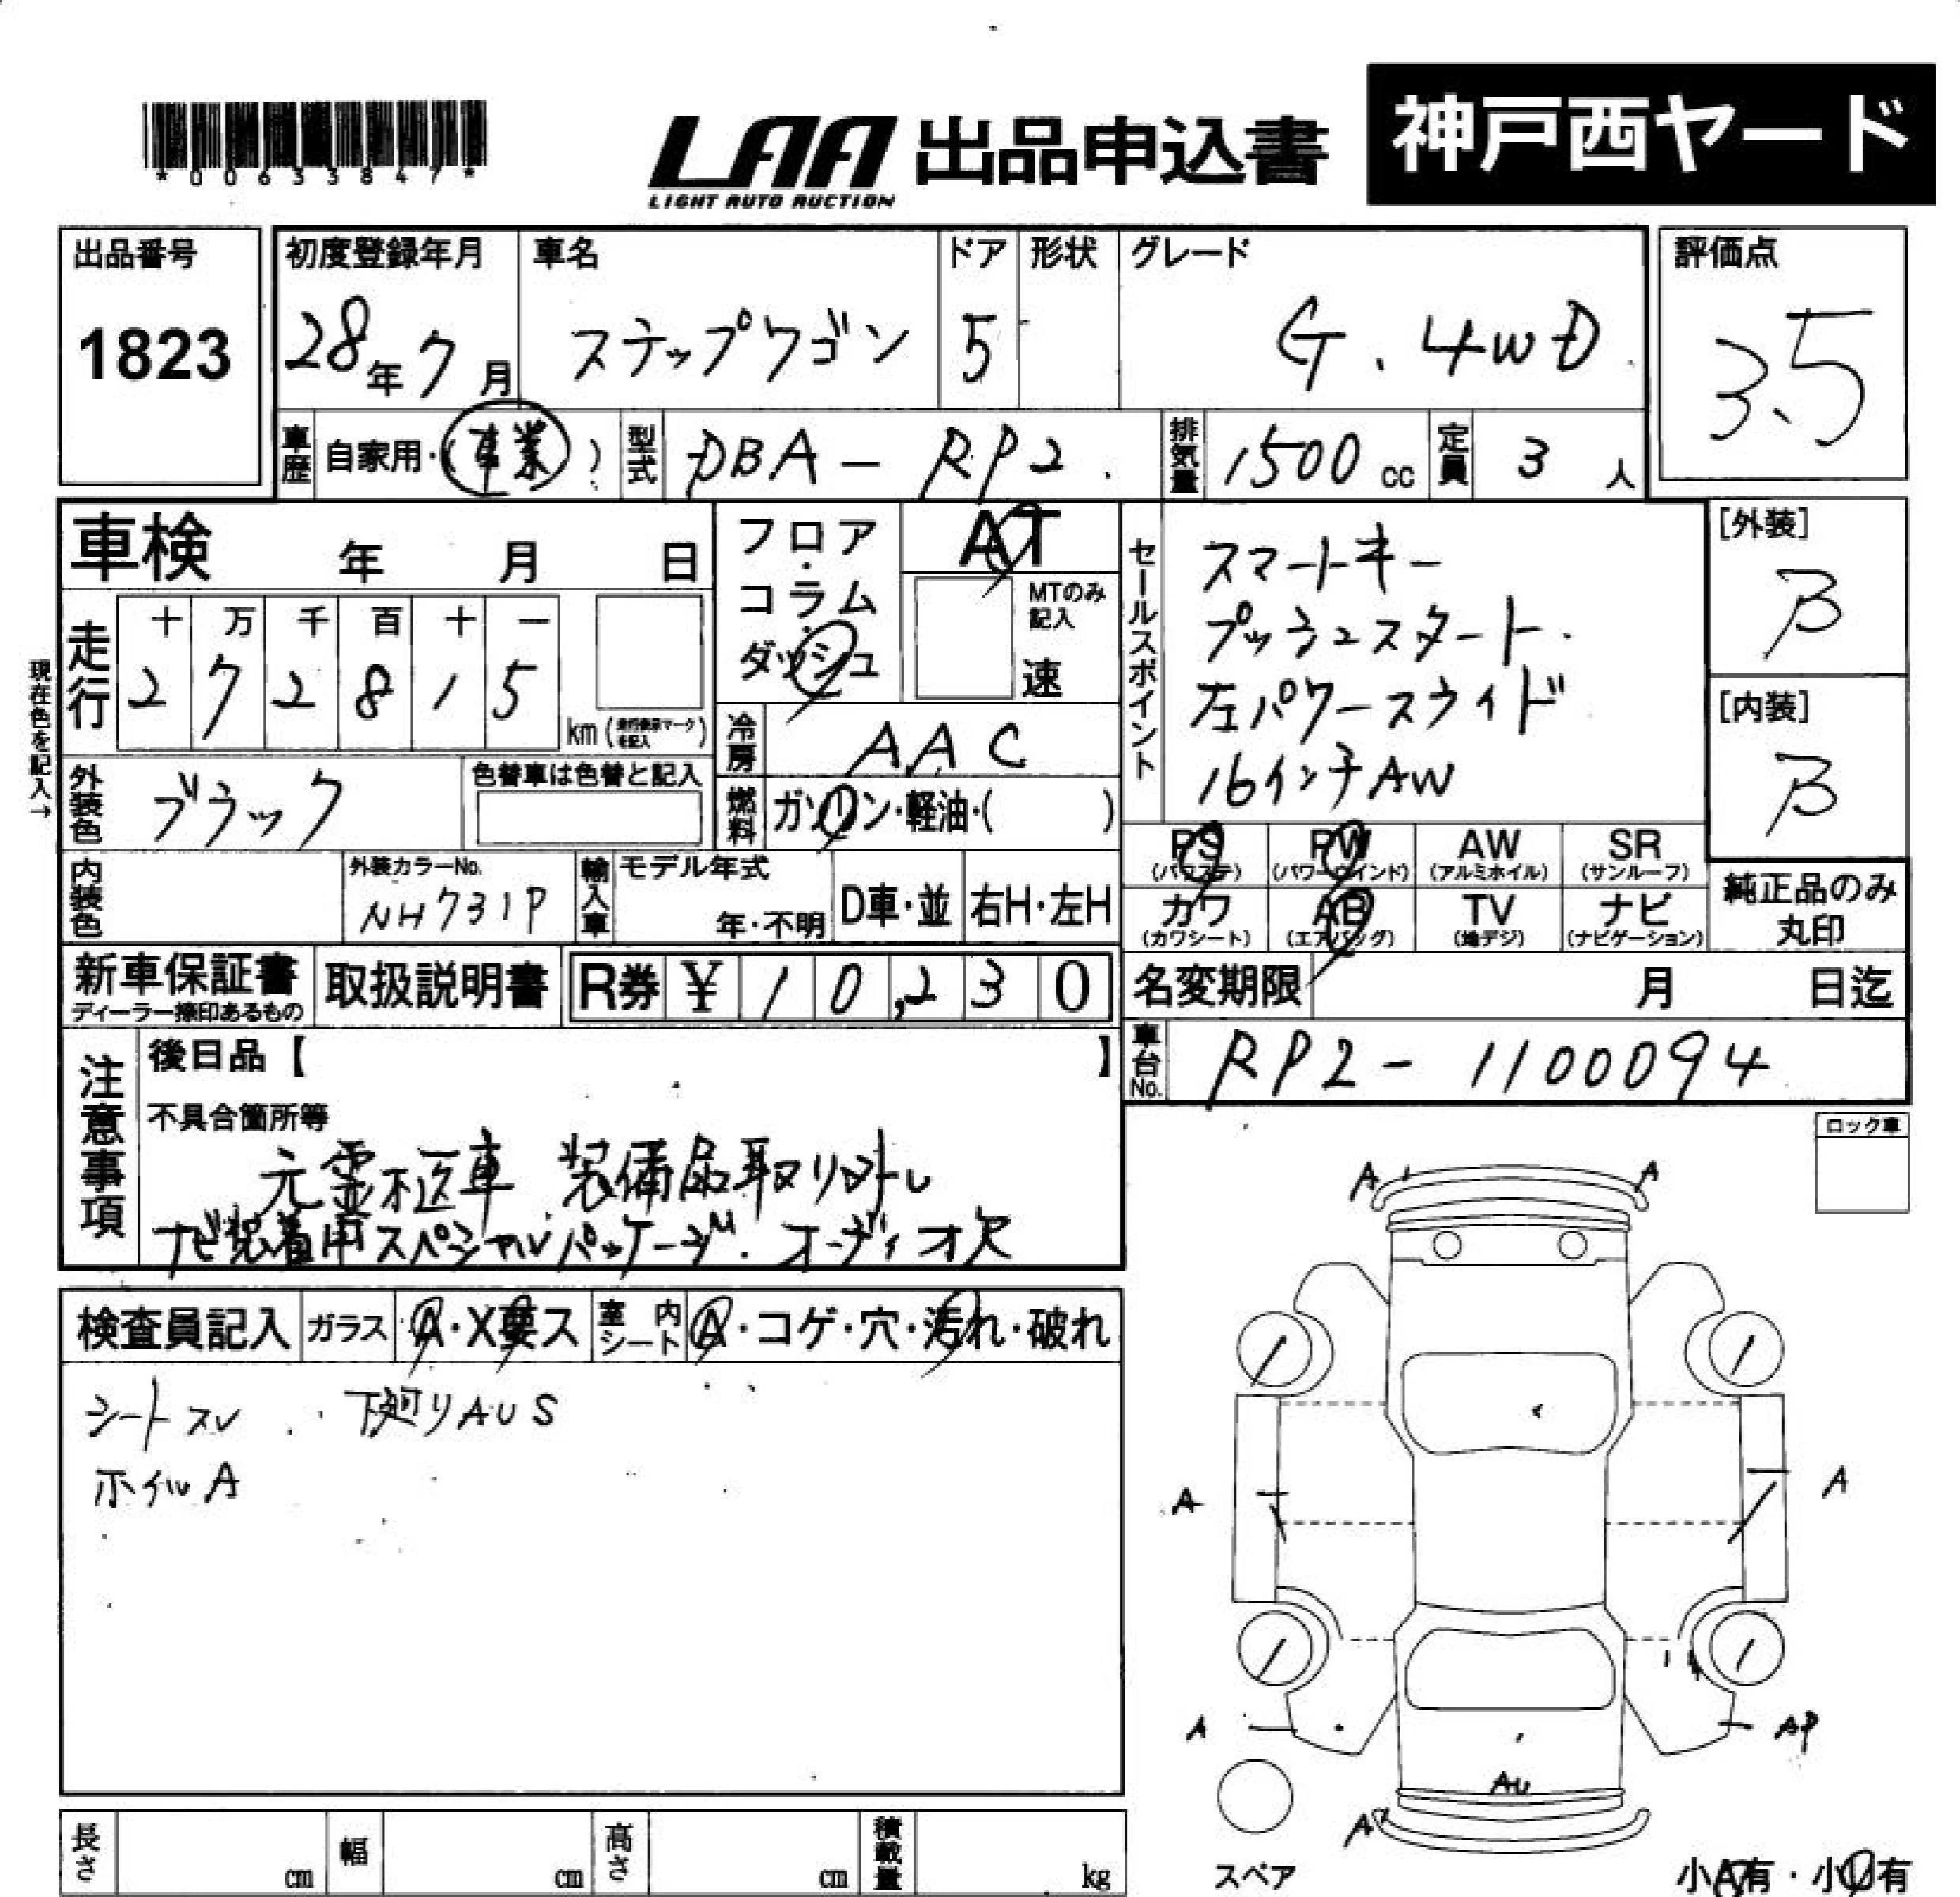 *00633847*
LAA 出品申込書
LIGHT AUTO AUCTION
神戸西ヤード
出品番号
1823
初度登録年月
28年7月
車名
ステップワゴン
ドア
5
形状
グレード
G.4WD
評価点
3.5
車歴 自家用・(事業)
型式 DBA-RP2
排気量 1500cc
定員 3人
車検 年 月 日
フロア・コラム・ダッシュ
AT
MTのみ記入
速
現在色を記入→
走行
十 万 千 百 十 一
2 7 2 8 1 5
km
冷房 AAC
燃料 ガソリン・軽油・( )
外装色 ブラック
色替車は色替と記入
内装色
外装カラーNo.
NH731P
輸入車 モデル年式
年・不明
D車・並
右H・左H
セールスポイント
スマートキー
プッシュスタート
左パワースライド
16インチAW
[外装]
B
[内装]
B
PS (パワステ)
PW (パワーウインド)
AW (アルミホイル)
SR (サンルーフ)
カワ (カワシート)
AB (エアバッグ)
TV (地デジ)
ナビ (ナビゲーション)
純正品のみ丸印
新車保証書
ディーラー捺印あるもの
取扱説明書
R券 ¥10,230
名変期限 月 日迄
車台No. RP2-1100094
注意事項
後日品【 】
不具合箇所等
元霊柩車 装備品取り外し
ナビ装着用スペシャルパッケージ.オーディオ欠
ロック車
検査員記入
ガラス A・X要ス
室内シート A・コゲ・穴・汚れ・破れ
シートスレ 下廻りAUS
ホイルA
A A
A A
A AP
AU
A
スペア
小A有・小U有
長さ cm
幅 cm
高さ cm
積載量 kg